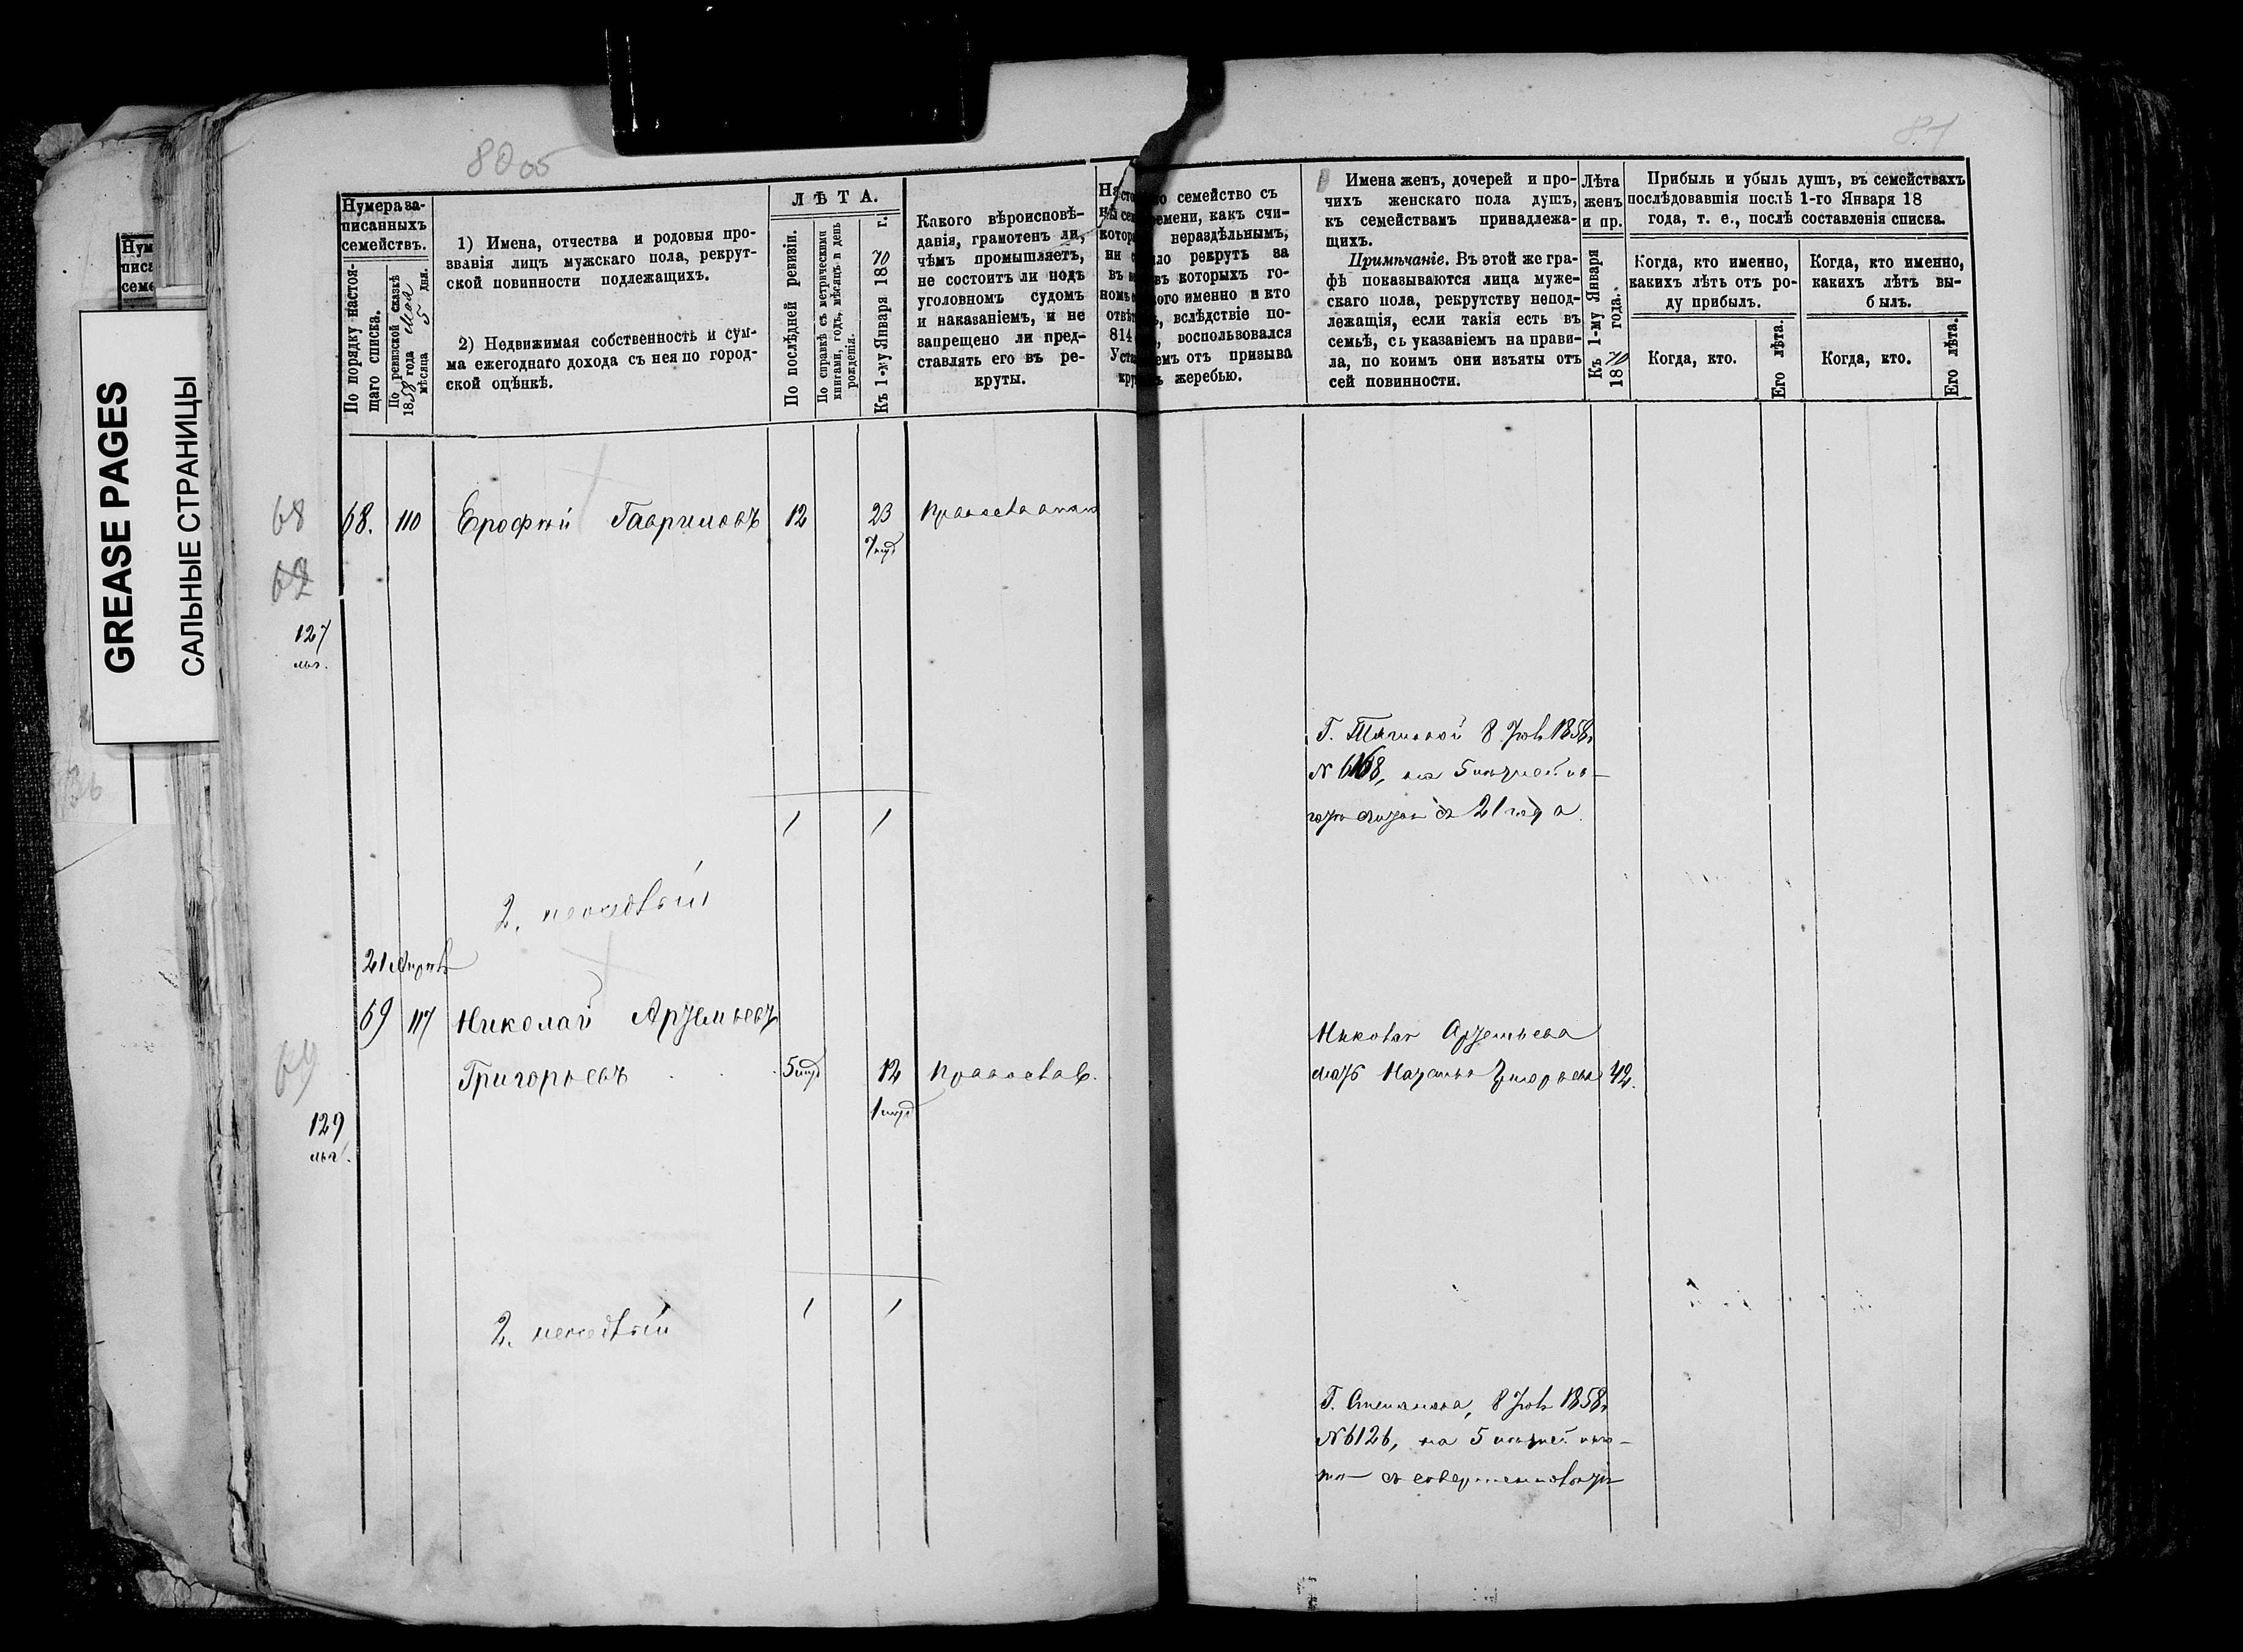 GREASE PAGES
САЛЬНЫЕ СТРАНИЦЫ
80 об
81
Нумера за-
писанныхъ
семействъ.
По порядку настоя-
щаго списка.
По ревизской сказкѣ
1858 года Мая
мѣсяца 5 дня.
1) Имена, отчества и родовыя про-
званія лицъ мужскаго пола, рекрут-
ской повинности подлежащихъ.
2) Недвижимая собственность и сум-
ма ежегоднаго дохода съ нея по город-
ской оцѣнкѣ.
ЛѢТА.
По послѣдней ревизіи.
По справкѣ съ метрическими
книгами, годъ, мѣсяцъ и день
рожденія.
Къ 1-му Января 1870 г.
Какого вѣроисповѣ-
данія, грамотенъ ли,
чѣмъ промышляетъ,
не состоитъ ли подъ
уголовномъ судомъ
и наказаніемъ, и не
запрещено ли пред-
ставлять его въ ре-
круты.
семейство съ
времени, какъ счи-
нераздѣльнымъ,
рекрутъ за
въ которыхъ го-
именно и кто
вслѣдствіе по-
814 воспользовался
отъ призыва
жеребью.
Имена женъ, дочерей и про-
чихъ женскаго пола душъ,
къ семействамъ принадлежа-
щихъ.
Примѣчаніе. Въ этой же гра-
фѣ показываются лица муже-
скаго пола, рекрутству непод-
лежащія, если такія есть въ
семьѣ, съ указаніемъ на прави-
ла, по коимъ они изъяты отъ
сей повинности.
Лѣта
женъ
и пр.
Къ 1-му Января
1870 года.
Прибыль и убыль душъ, въ семействахъ
послѣдовавшія послѣ 1-го Января 18
года, т. е., послѣ составленія списка.
Когда, кто именно,
какихъ лѣтъ отъ ро-
ду прибылъ.
Когда, кто именно,
какихъ лѣтъ вы-
былъ.
Когда, кто.
Его лѣта.
Когда, кто.
Его лѣта.
68 68. 110 Ерофѣй Гавриловъ 12 23 православнаго
68
127
8 1858
N 6168, на 5
съ 21 года
1 1
2.
69 117 Николай Артемьевъ
Григорьевъ 5 12 православ.
69
129
Николая Артемьева
мать Наталья Григорьева 42.
1 1
2.
Г. Степанова, 8 1858
N 6126, на 5
съ